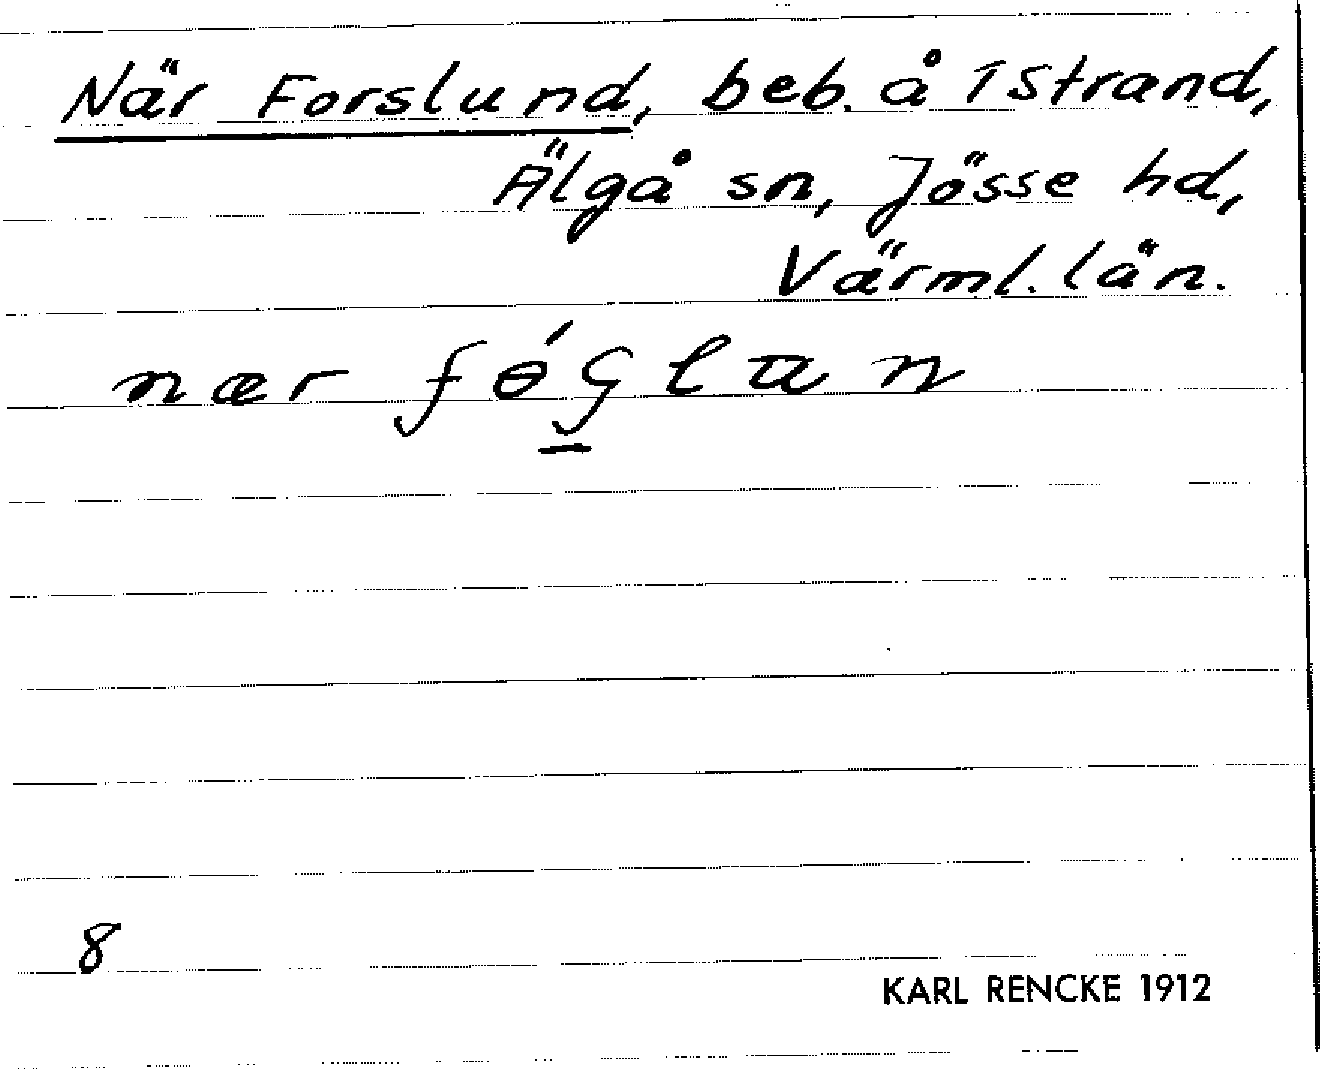 När Forslund, beb. å 1 Strand,
Älgå sn, Jösse hd,
Värml. län.
nær
8
KARL RENCKE 1912